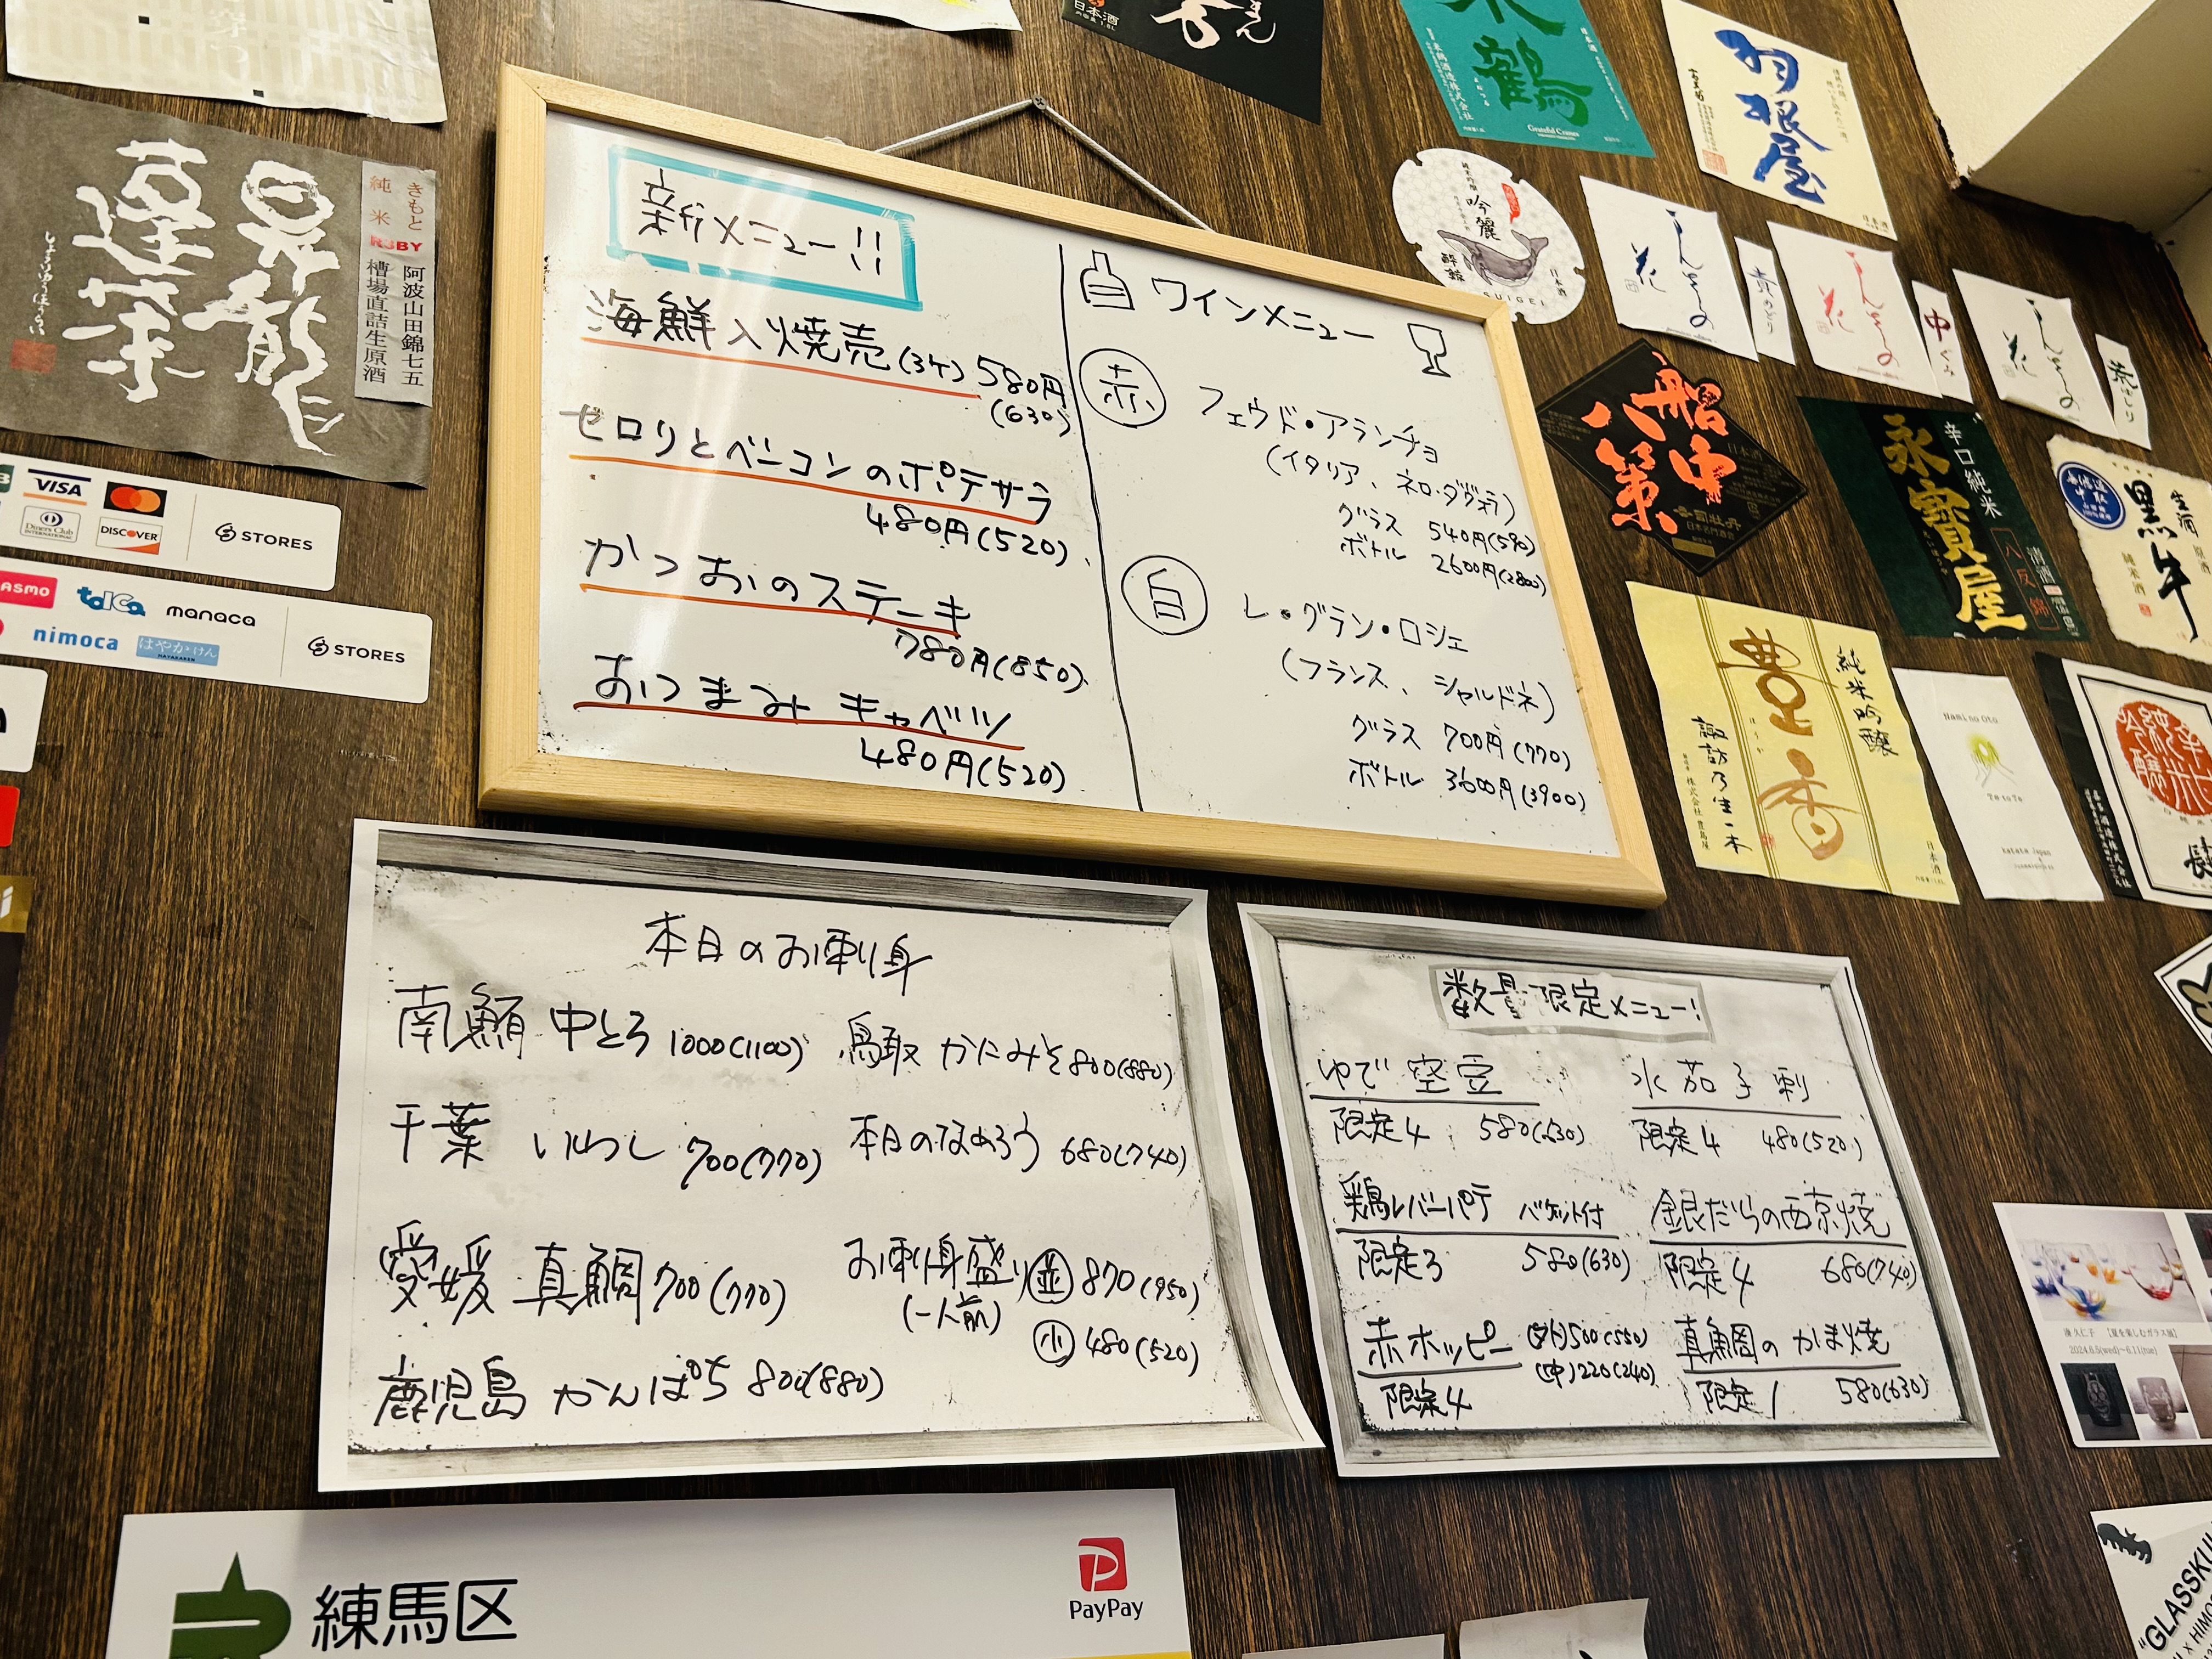 新メニュー!!
海鮮入焼売(3ケ) 580円
(630)
セロリとベーコンのポテサラ
480円(520)
かつおのステーキ
780円(850)
おつまみキャベツ
480円(520)
ワインメニュー
赤
フェウド・アランチョ
(イタリア、ネロ・ダヴォラ)
グラス 540円(590)
ボトル 2600円(2800)
白
レ・グラン・ロシェ
(フランス、シャルドネ)
グラス 700円(770)
ボトル 3600円(3900)
本日のお刺身
南鮪 中とろ 1000(1100)
千葉 いわし 700(770)
愛媛 真鯛 700(770)
鹿児島 かんぱち 800(880)
鳥取 かにみそ 800(880)
本日のなめろう 680(740)
お刺身盛り 並 870(950)
(一人前)
小 480(520)
数量限定メニュー!
ゆで空豆
限定4 580(630)
水茄子刺
限定4 480(520)
鶏レバーパテ バゲット付
限定3 580(630)
銀だらの西京焼
限定4 680(740)
赤ホッピー (外)500(550)
(中)220(240)
限定4
真鯛のかま焼
限定1 580(630)
昇龍
蓬莱
きもと
純米
阿波山田錦七五
槽場直詰生原酒
VISA
Diners Club
INTERNATIONAL
DISCOVER
STORES
PASMO
toica
manaca
nimoca
はやかけん
STORES
日本酒
鶴
Grateful Cranes
羽根屋
吟麗
酔鯨
SUIGEI
日本酒
花
花
中ぐみ
花
船中
八策
辛口純米
永寳屋
八反錦
清酒
生酒
黒牛
純米酒
純米吟醸
豊香
諏訪乃生一本
日本酒
Hami no Oto
Te to Te
練馬区
PayPay
2024.6.5(wed)~6.11(tue)
"GLASSKULL